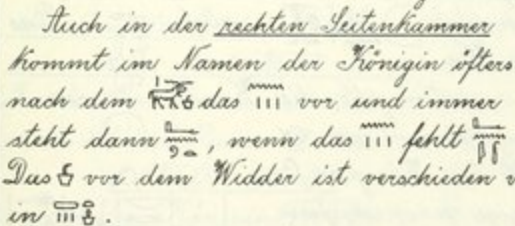 Auch in der rechten Seitenkammer
kommt im Namen der Königin öfters
nach dem das vor und immer
steht dann , wenn das fehlt
Das vor dem Widder ist verschieden v
in .